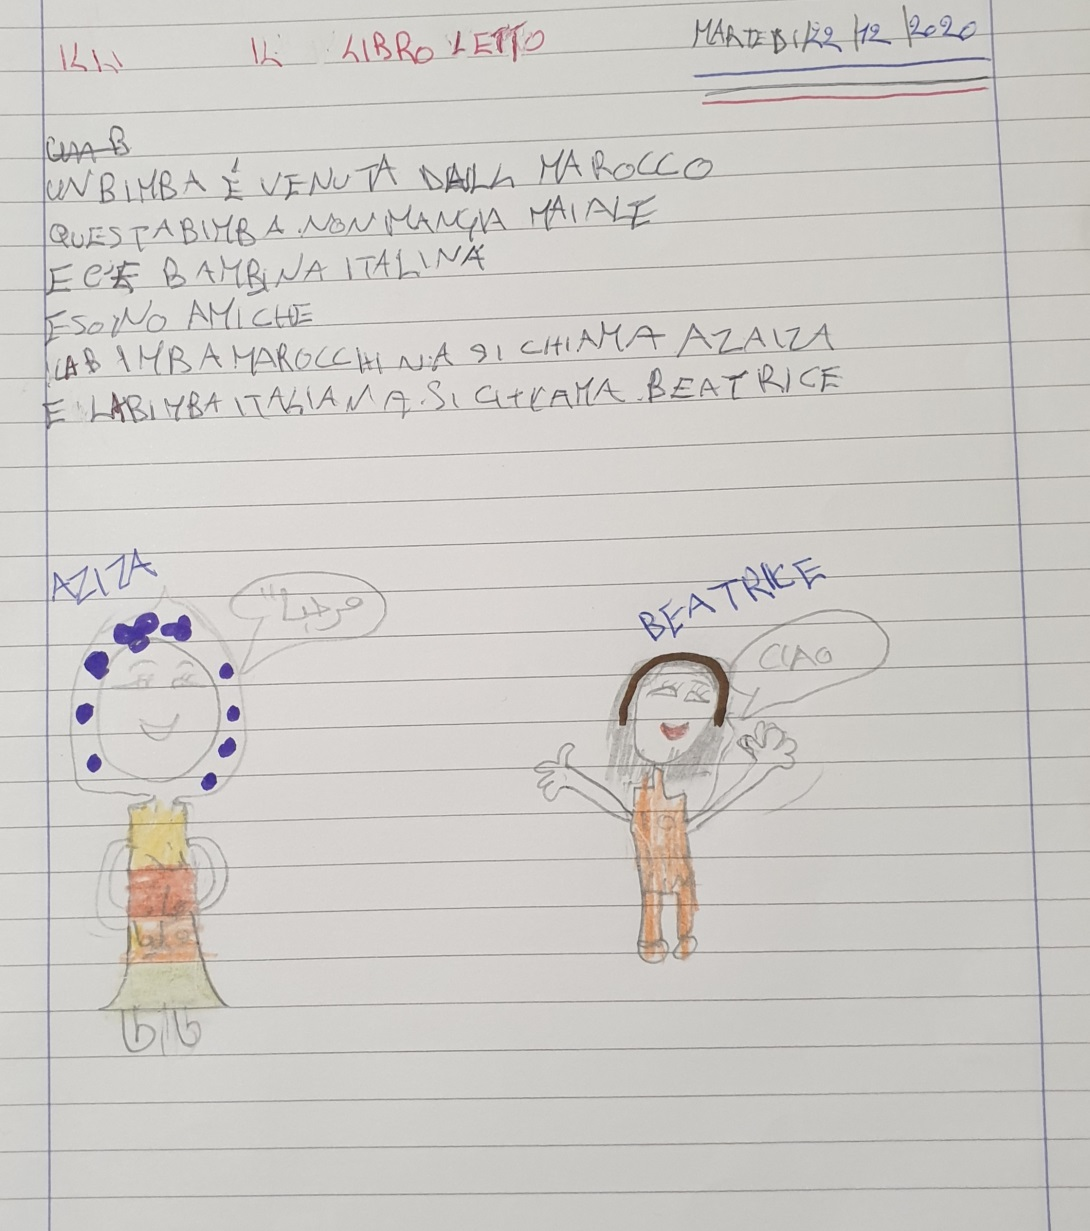 IL LIBRO LETTO
MARTEDI 22/12/2020
UN BIMBA É VENUTA DALL MAROCCO
QUESTA BIMBA NON MANGIA MAIALE
E C'E BAMBINA ITALINA
E SONO AMICHE
LA BIMBA MAROCCHINA SI CHIAMA AZAIZA
E LA BIMBA ITALIANA SI CHIAMA BEATRICE
AZIZA
مرحبا
BEATRICE
CIAO